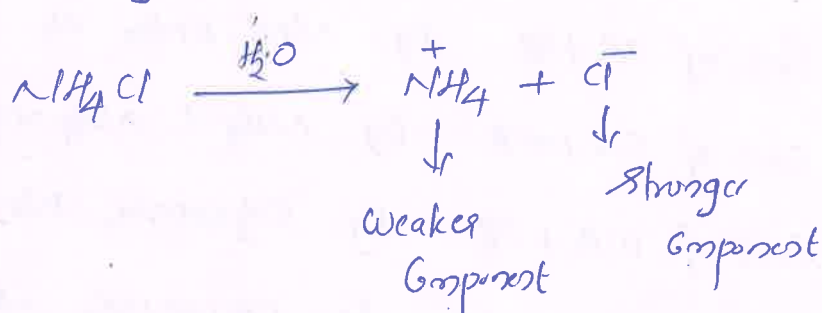 H₂O
NH₄Cl ⟶ NH₄⁺ + Cl⁻
↓ ↓
Weaker Component
Stronger Component